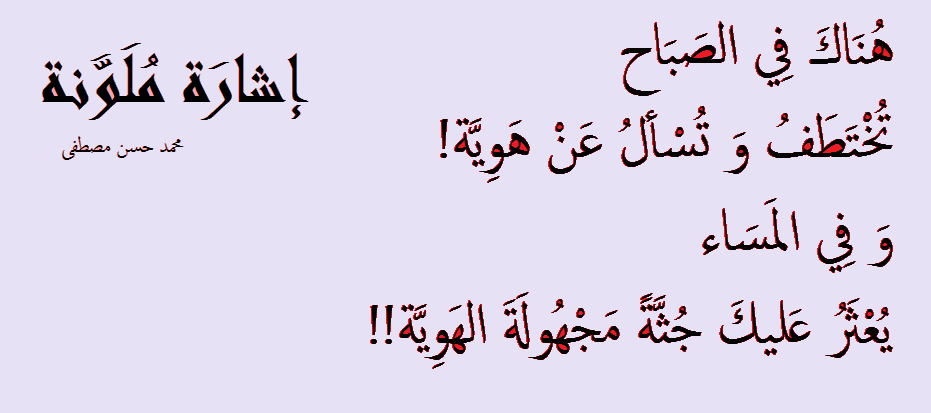 إشارَة مُلَوَّنة
محمد حسن مصطفى
هُنَاكَ فِي الصَبَاح
تُخْتَطَفُ وَ تُسْألُ عَنْ هَوِيَّة!
وَ فِي المَسَاء
يُعْثَرُ عَليكَ جُثَّةً مَجْهُولَةَ الهَوِيَّة!!